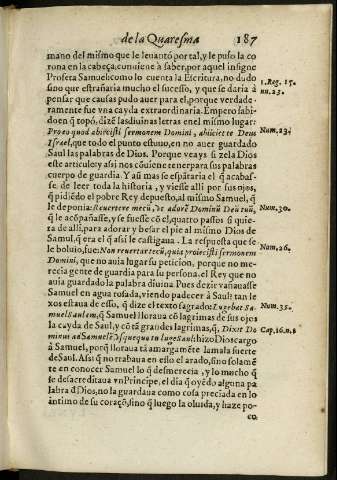 de la Quaresma 187
mano del mismo que le leuantó por tal, y le puso la co
rona en la cabeça, conuiene à saber, por aquel insigne
Profeta Samuel: como lo cuenta la Escritura, no dudo
sino que estrañaria mucho el sucesso, y que se daria à
pensar que causas pudo auer para el, porque verdade-
ramente fue vna cayda extraordinaria. Empero sabi-
do en q̃ topó, dizẽ las diuinas letras en el mismo lugar:
Pro eo quod abiecisti sermonem Domini, abiiciet te Deus
Israel, que todo esto estuuo, en no auer guardado
Saul las palabras de Dios. Porque veays si zela Dios
este articulo y assi nos cõuiene tener para sus palabras
cuerpo de guardia. Y aũ mas se espãtaria el q̃ acabas-
se de leer toda la historia, y viesse alli por sus ojos,
q̃ pidiẽdo el pobre Rey depuesto, al mismo Samuel, q̃
le deponia: Reuertere mecũ, ũt adorẽ Dominũ Deũ tuũ,
que le acõpañasse, y se fuesse cõ el, quatro passos si quie-
ra de alli, para adorar y besar el pie al mismo Dios de
Samul, q̃ era el q̃ assi le castigaua. La respuesta que se
le boluio, fue: Non reuertar tecũ, quia proiecisti sermonem
Domini, que no auia lugar su peticion, porque no me-
recia gente de guardia para su persona, el Rey que no
auia guardado la palabra diuina Pues dezir vañuasse
Samuel en agua rosada, viendo padecer à Saul: tan le
xos estaua de esso, q̃ dize el texto sagrado: Lugebat Sa
muel Saulem, q̃ Samuel lloraua cõ lagrimas de sus ojos
la cayda de Saul, y cõ tã grandes lagrimas, q̃, Dixit Do
minus ad Samuelẽ Vsquequo tu luges Saul: hizo Dios cargo
à Samuel, porq̃ lloraua tã amargamẽte la mala suerte
de Saul. Assi q̃ no trabaua en esso el arado, sino solamẽ
te en conocer Samuel lo q̃ desmerecia, y lo mucho q̃
se desacreditaua vn Principe, el dia q̃ oyẽdo alguna pa
labra d̃ Dios, no la guardaua como cosa preciada en lo
intimo de su coraçõ, sino q̃ luego la oluida, y haze po-
co
1. Reg. 15.
nu. 23.
Num. 23.
Num. 30.
Num. 26.
Num. 35.
Cap. 16. n. 1